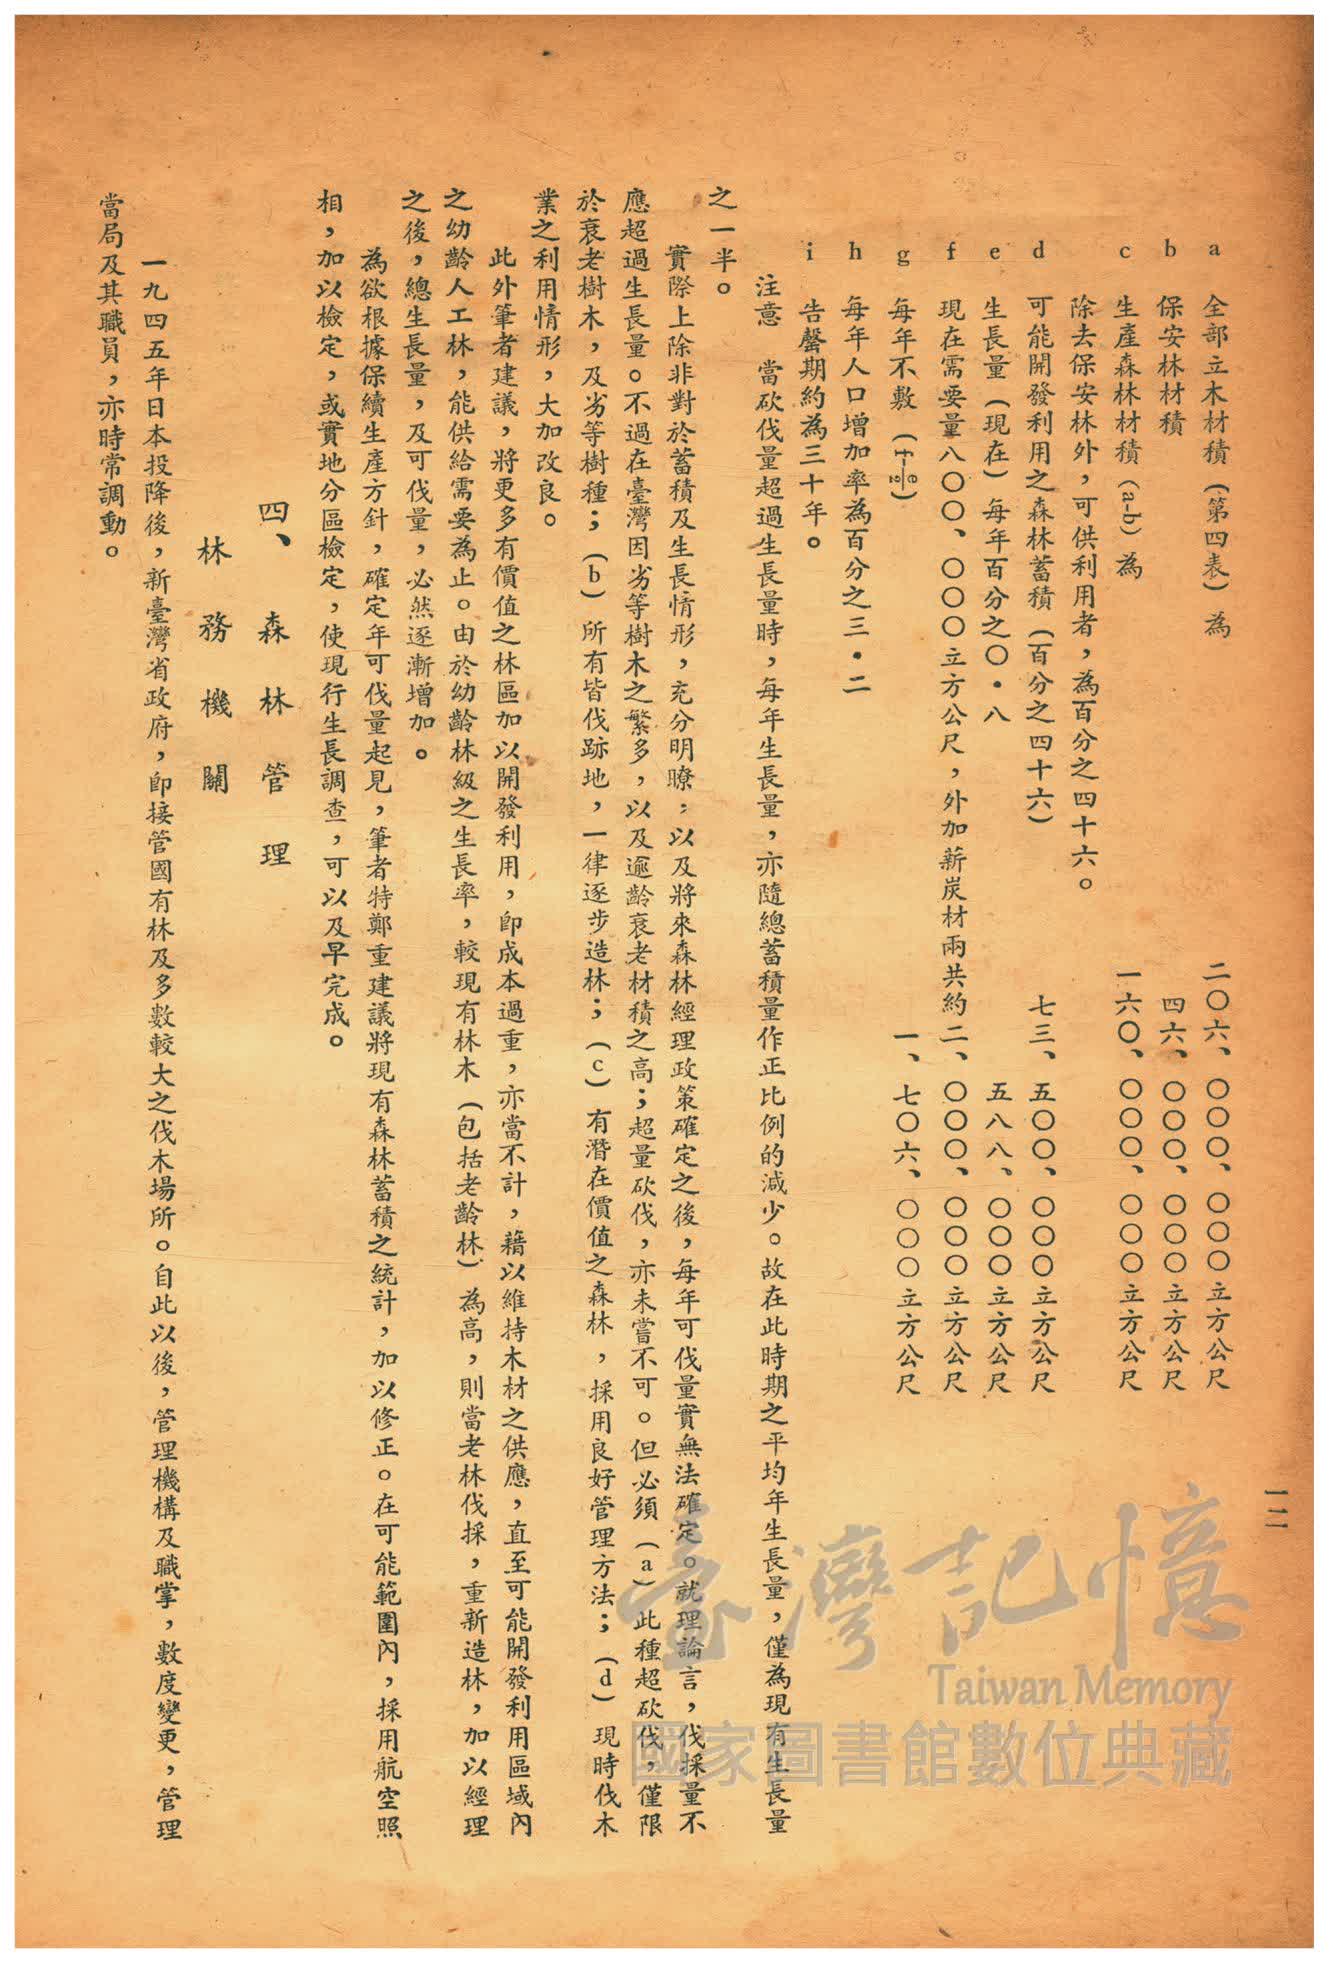 一二
a　全部立木材積（第四表）為　二〇六、〇〇〇、〇〇〇立方公尺
b　保安林材積　四六、〇〇〇、〇〇〇立方公尺
c　生產森林材積（a-b）為　一六〇、〇〇〇、〇〇〇立方公尺
除去保安林外，可供利用者，為百分之四十六。
d　可能開發利用之森林蓄積（百分之四十六）　七三、五〇〇、〇〇〇立方公尺
e　生長量（現在）每年百分之〇・八　五八八、〇〇〇立方公尺
f　現在需要量八〇〇、〇〇〇立方公尺，外加薪炭材兩共約二、〇〇〇、〇〇〇立方公尺
g　每年不敷（f-e/2）　一、七〇六、〇〇〇立方公尺
h　每年人口增加率為百分之三・二
i　告罄期約為三十年。
注意　當砍伐量超過生長量時，每年生長量，亦隨總蓄積量作正比例的減少。故在此時期之平均年生長量，僅為現有生長量
之一半。
實際上除非對於蓄積及生長情形，充分明瞭；以及將來森林經理政策確定之後，每年可伐量實無法確定。就理論言，伐採量不
應超過生長量。不過在臺灣因劣等樹木之繁多，以及逾齡衰老材積之高；超量砍伐，亦未嘗不可。但必須（a）此種超砍伐，僅限
於衰老樹木，及劣等樹種；（b）所有皆伐跡地，一律逐步造林；（c）有潛在價值之森林，採用良好管理方法；（d）現時伐木
業之利用情形，大加改良。
此外筆者建議，將更多有價值之林區加以開發利用，即成本過重，亦當不計，藉以維持木材之供應，直至可能開發利用區域內
之幼齡人工林，能供給需要為止。由於幼齡林級之生長率，較現有林木（包括老齡林）為高，則當老林伐採，重新造林，加以經理
之後，總生長量，及可伐量，必然逐漸增加。
為欲根據保續生產方針，確定年可伐量起見，筆者特鄭重建議將現有森林蓄積之統計，加以修正。在可能範圍內，採用航空照
相，加以檢定，或實地分區檢定，使現行生長調查，可以及早完成。
四、森林管理
林務機關
一九四五年日本投降後，新臺灣省政府，即接管國有林及多數較大之伐木場所。自此以後，管理機構及職掌，數度變更，管理
當局及其職員，亦時常調動。
臺灣記憶
Taiwan Memory
國家圖書館數位典藏